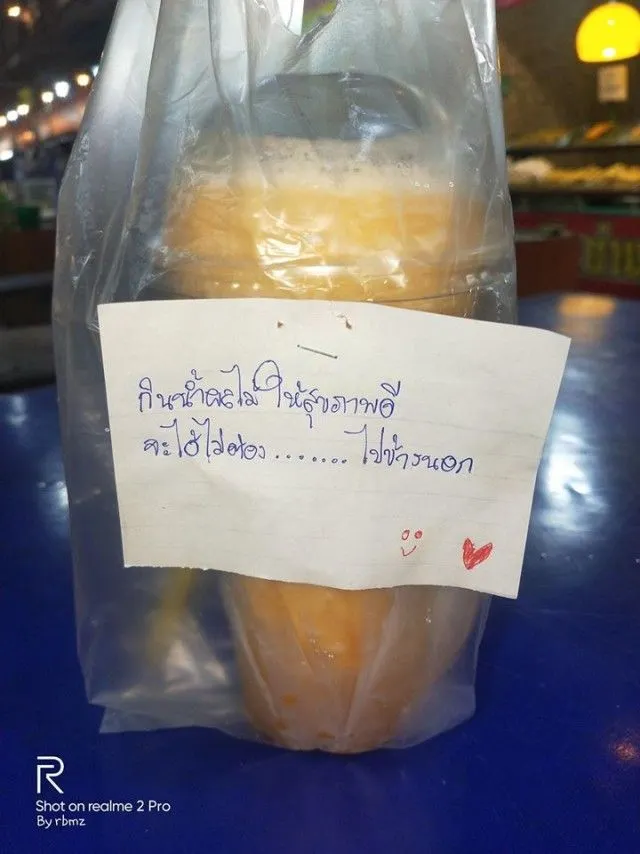 กินน้ำผลไม้ ให้สุขภาพดี
จะได้ไม่ต้อง ....... ไปข้างนอก
R
Shot on realme 2 Pro
By rbmz